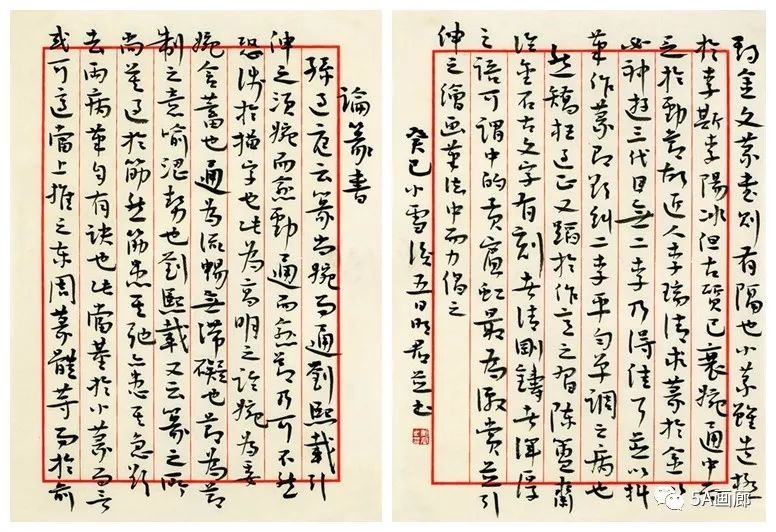 論篆書
孫過庭云篆尚婉而通劉熙載引
伸之須婉而愈勁通而愈節乃可不然
恐涉於描字也此為高明之論婉為委
婉含蓄也通為流暢無滯礙也節為節
制之意喻澀勢也劉熙載又云篆之所
尚莫過於筋然筋患其弛亦患其急欲
去兩病筆勻有訣也此當基於小篆而言
或可適當上推之东周篆體等而於前
對金文篆書則有隔也小篆雖造極
於李斯李陽冰但古質已衰婉通中而
乏於勁節故近人李瑞清求篆於金
必神遊三代目無二李乃得佳
筆作篆即欲糾二李平勻單調之病也
然矯枉過正又蹈於作意之習陳簠齋
論金石古文字有刻者清剛鑄者渾厚
之語可謂中的黃賓虹最為激賞並引
伸之繪画筆法中而力倡之
癸巳小雪後五日明君並書
5A画廊